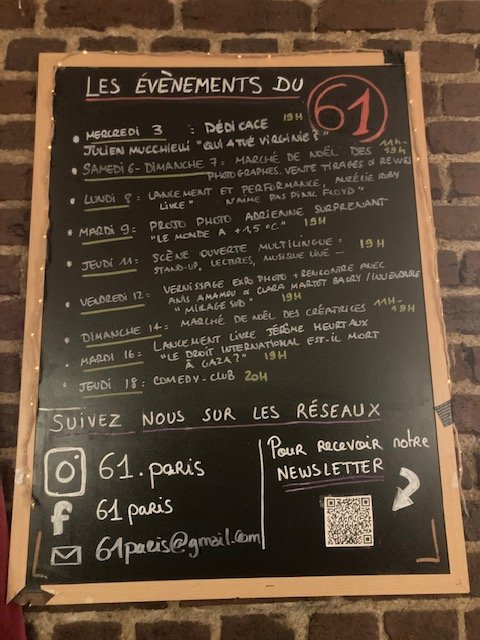 LES ÉVÈNEMENTS DU 61
MERCREDI 3 : DÉDICACE 19H
JULIEN MUCCHIELLI "QUI A TUÉ VIRGINIE?"
SAMEDI 6 - DIMANCHE 7 : MARCHÉ DE NOËL DES 11H-19H
PHOTOGRAPHES. VENTE TIRAGES & REVUES
LUNDI 8 : LANCEMENT ET PERFORMANCE, AURÉLIE
LIVRE "N'AIME PAS PINK FLOYD"
MARDI 9 : PROJO PHOTO ADRIENNE SURPRENANT
"LE MONDE A +1,5°C" 19H
JEUDI 11 : SCÈNE OUVERTE MULTILINGUE : 19H
STAND-UP, LECTURES, MUSIQUE LIVE ...
VENDREDI 12 : VERNISSAGE EXPO PHOTO + RENCONTRE AVEC
CLARA MARTOT BACRY /
"MIRAGE SUD" 19H
DIMANCHE 14 : MARCHÉ DE NOËL DES CRÉATRICES 11H-19H
MARDI 16 : LANCEMENT LIVRE JÉRÔME HEURTAUX
"LE DROIT INTERNATIONAL EST-IL MORT
À GAZA?" 19H
JEUDI 18 : COMEDY-CLUB 20H
SUIVEZ NOUS SUR LES RÉSEAUX
61.paris
61 paris
61paris@gmail.com
Pour recevoir notre
NEWSLETTER